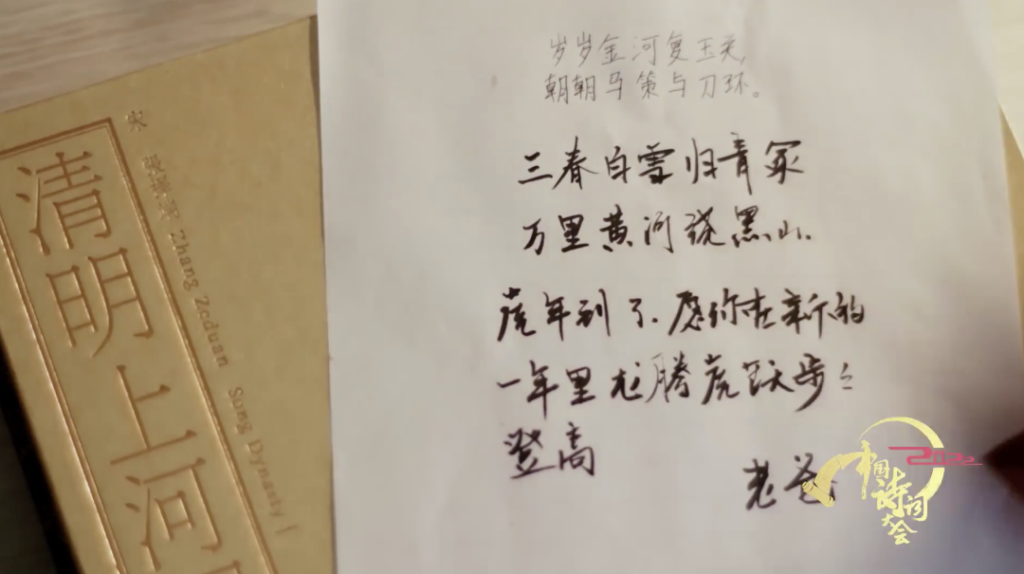 岁岁金河复玉关,
朝朝马策与刀环。
三春白雪归青冢
万里黄河绕黑山.
虎年到了.愿你在新的
一年里龙腾虎跃步々
登高
老爸
宋
张择端 Zhang Zeduan Song Dynasty
清明上河
中国诗词
大会